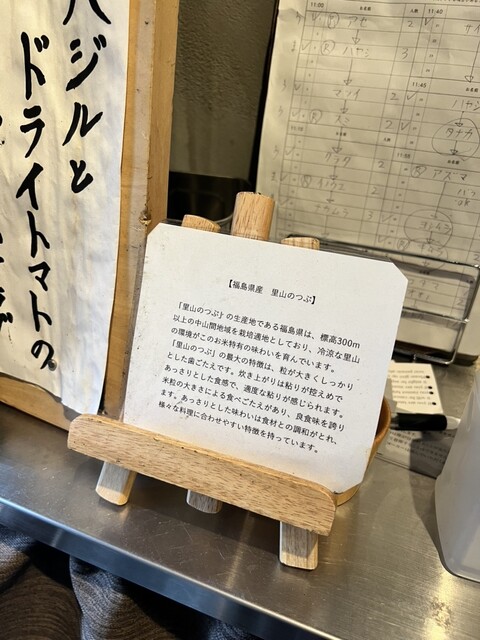 バジルと
ドライトマトの
【福島県産　里山のつぶ】
「里山のつぶ」の生産地である福島県は、標高300m
以上の中山間地域を栽培適地としており、冷涼な里山
の環境がこのお米特有の味わいを育んでいます。
「里山のつぶ」の最大の特徴は、粒が大きくしっかり
とした歯ごたえです。炊き上がりは粘りが控えめで
あっさりとした食感で、適度な粘りが感じられます。
米粒の大きさによる食べごたえがあり、良食味を誇り
ます。あっさりとした味わいは食材との調和がとれ、
様々な料理に合わせやすい特徴を持っています。
11:00
お名前
人数
11:40
アヤ
2
ハヤシ
3
11:45
お名前
2
タナカ
2
アズマ